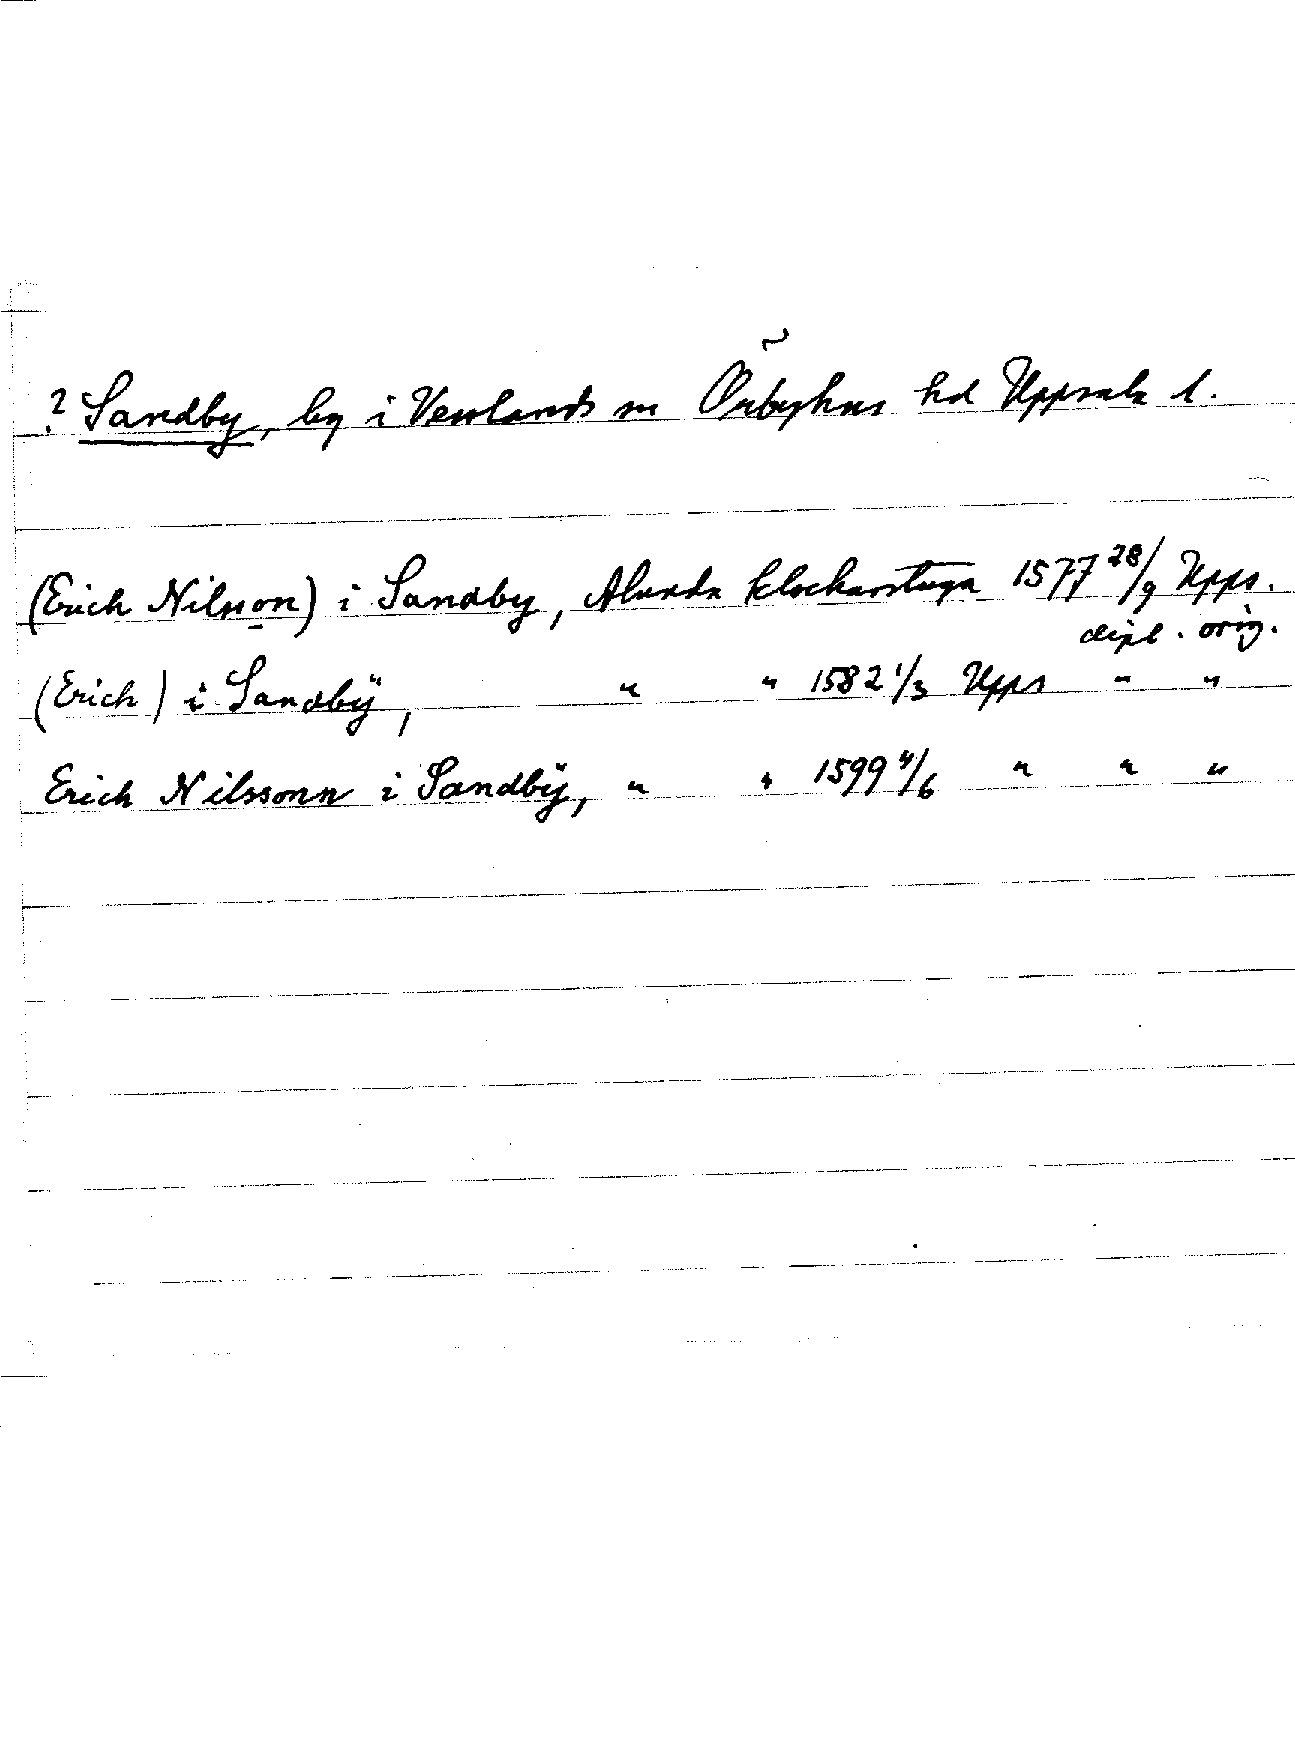 ? Sandby, by i Vendlands sn Örbyhus hd Uppsala l.
(Erich Nilsson) i Sandby, Alunda klockarstuga 1577 28/9 Upps.
dipl. orig.
(Erich) i Sandbÿ, " " 1582 1/3 Upps " "
Erich Nilssonn i Sandbÿ, " " 1599 4/6 " " "